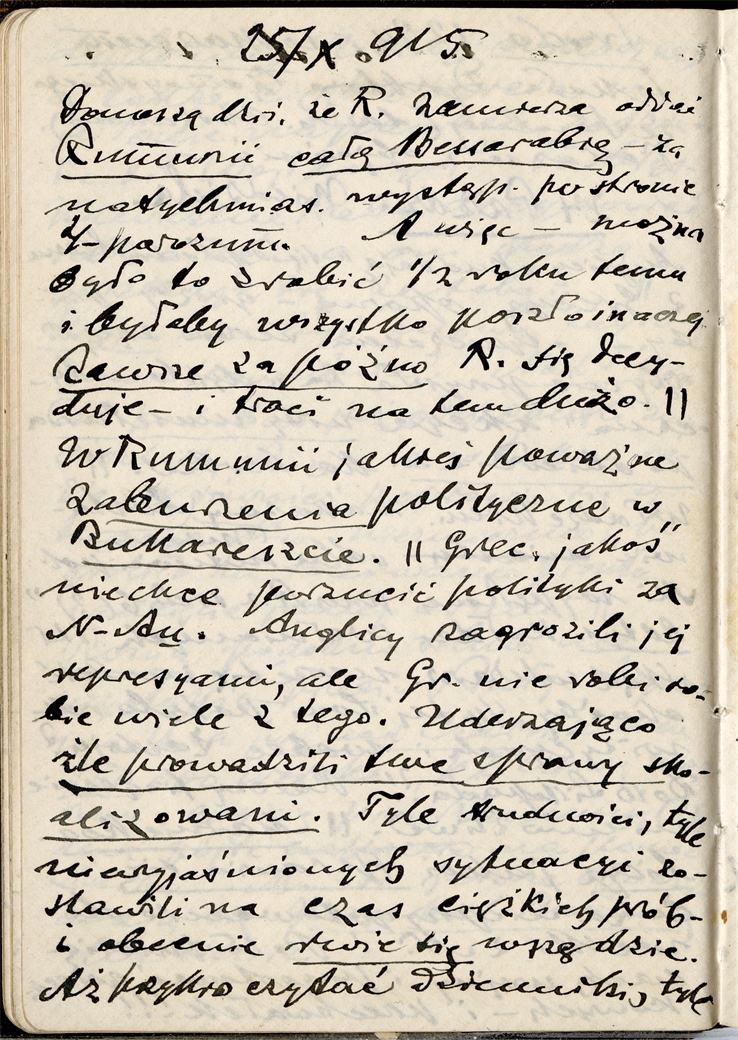 25/X 915.
Donoszą dziś, że R. zamierza oddać
Rumunii całą Bessarabię – za
natychmias. wystąp. po stronie
4-porozum. A więc – można
było to zrobić 1/2 roku temu
i byłaby wszystko poszło inaczej
Zawsze za późno R. się decy-
duje – i traci na tem dużo. ||
W Rumunii jakieś poważne
zaburzenia polityczne w
Bukareszcie. || Grec. jakoś
niechce porzucić polityki za
N-Au. Anglicy zagrozili jej
represyami, ale Gr. nie robi so-
bie wiele z tego. Uderzająco
źle prowadzili swe sprawy sko-
alizowani. Tyle trudności, tyle
niewyjaśnionych sytuacyi zo-
stawili na czas ciężkich prób –
i obecnie rwie się wszędzie.
Aż przykro czytać dzienniki, tyle